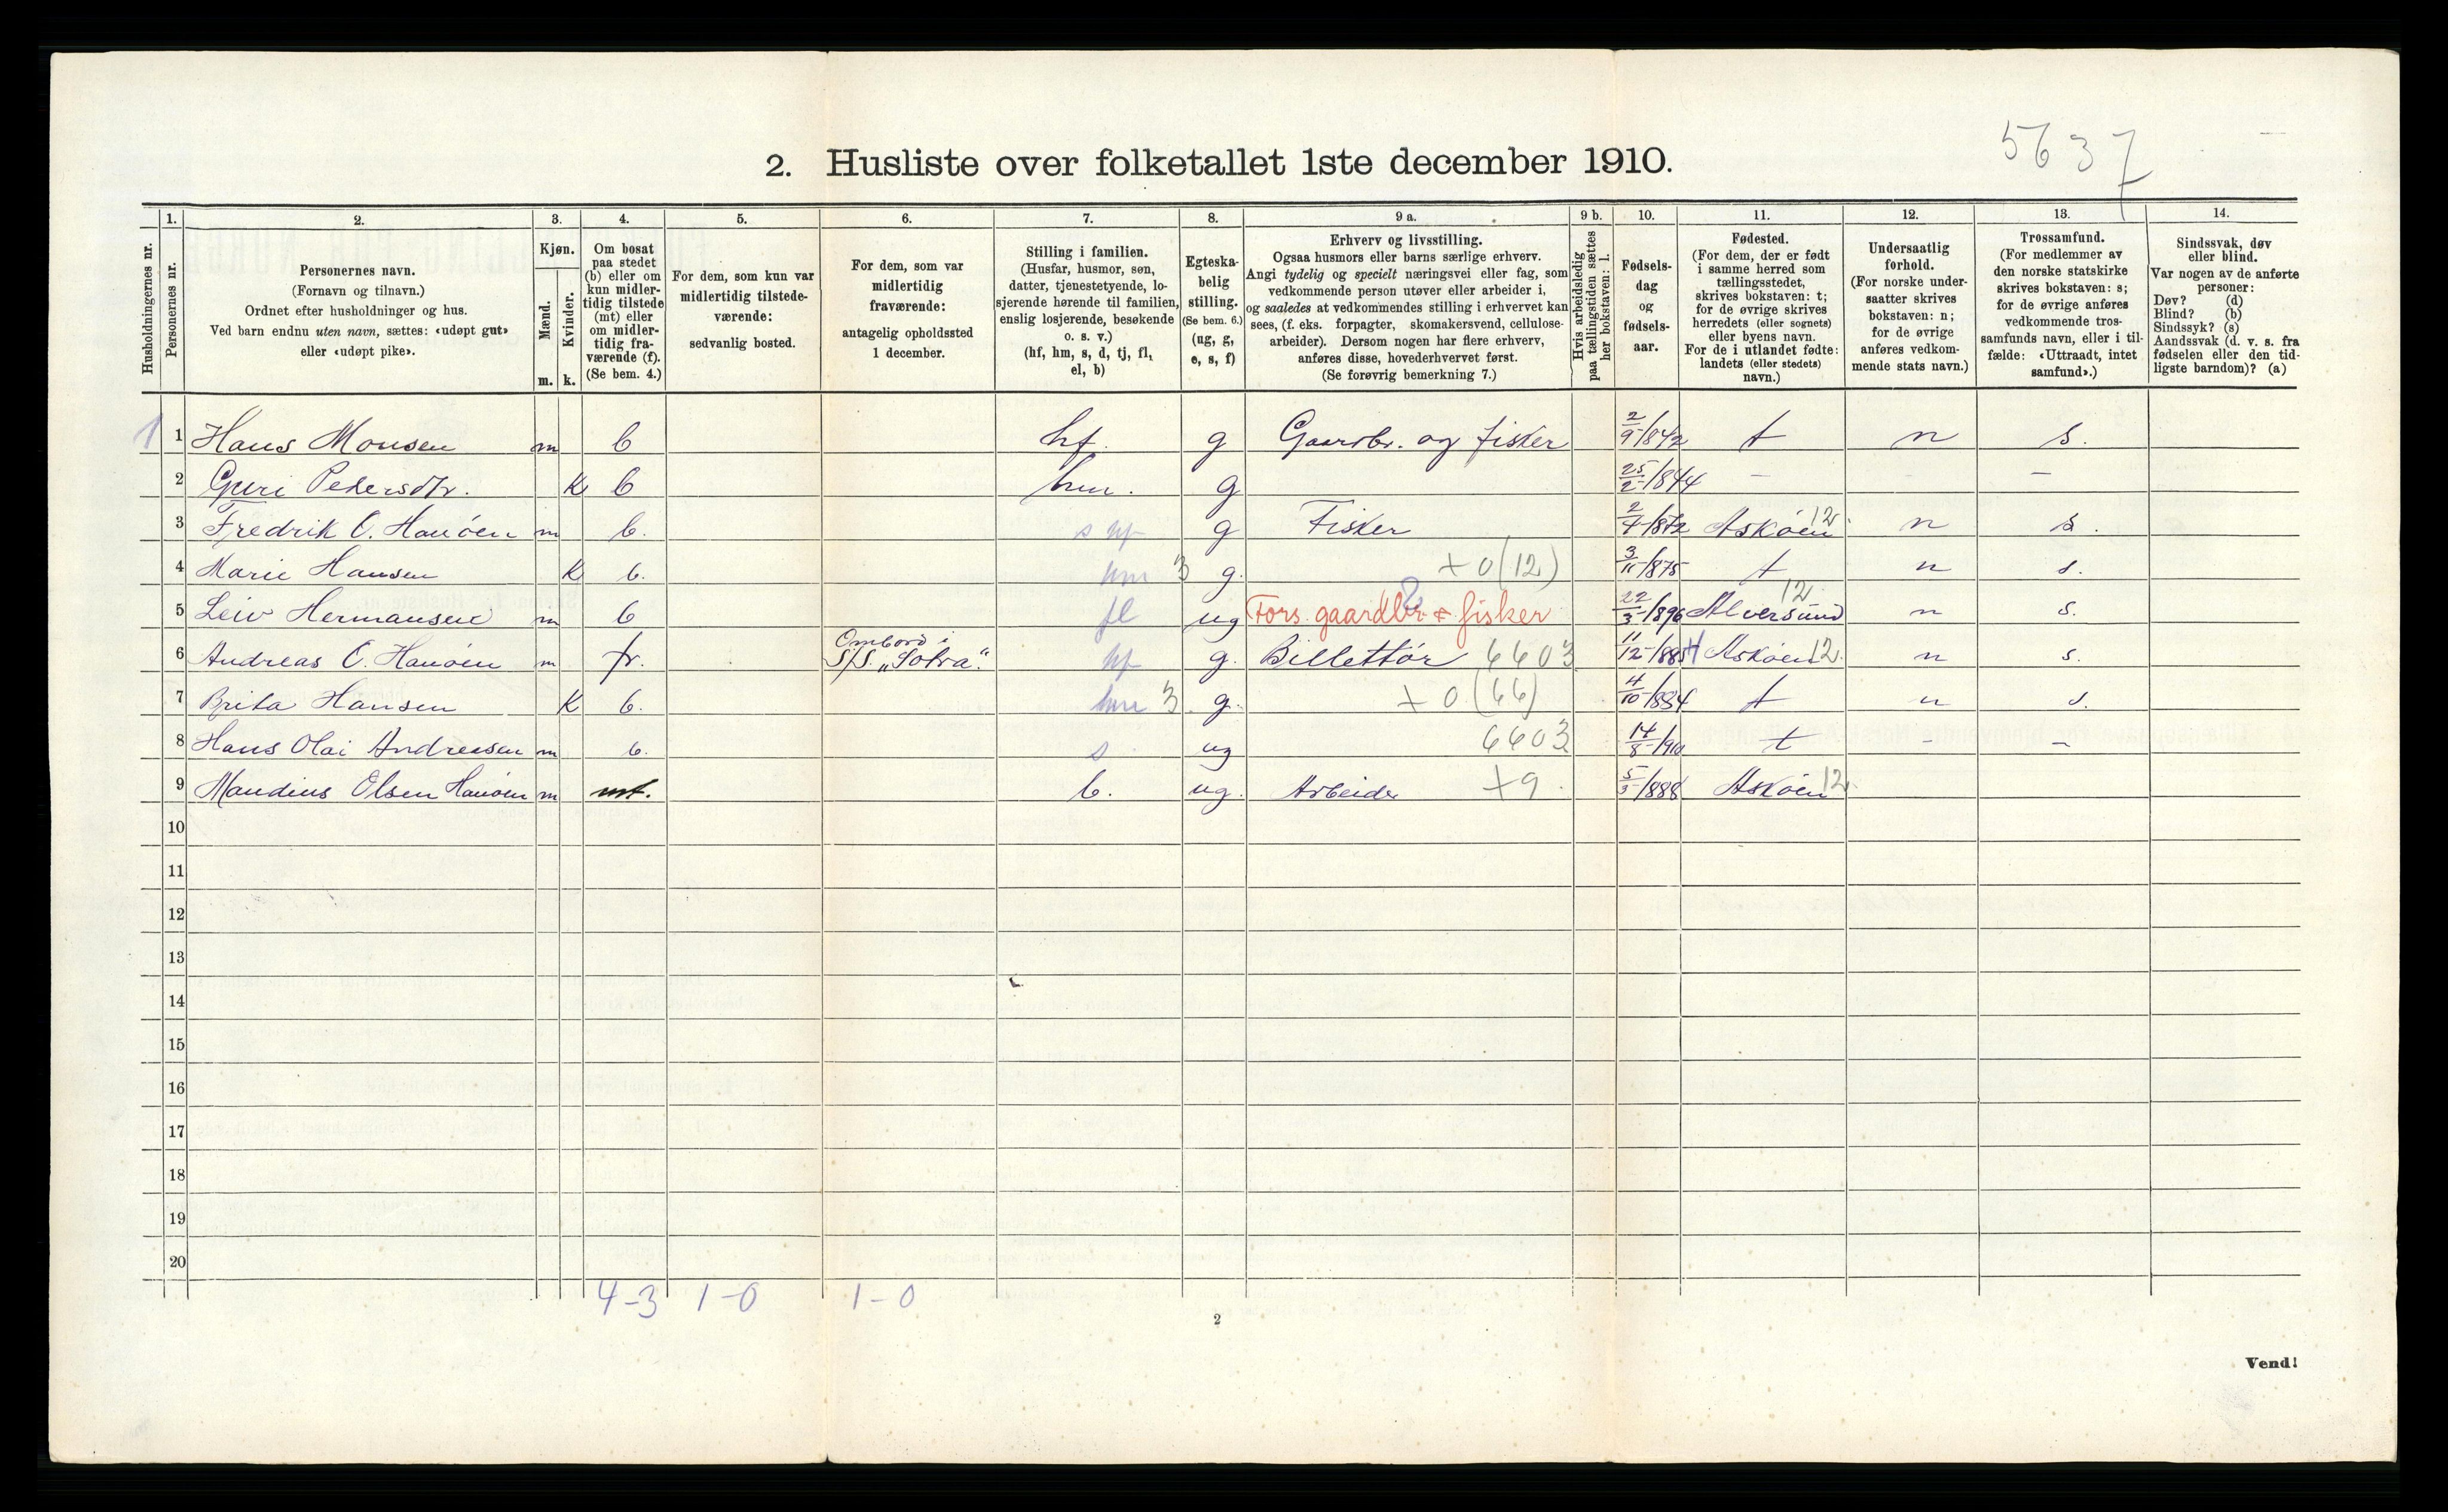 5637
2. Husliste over folketallet 1ste december 1910.
1. 2. 3. 4. 5. 6. 7. 8. 9 a. 9 b. 10. 11. 12. 13. 14.
Husholdningernes nr.
Personernes nr.
Personernes navn.
(Fornavn og tilnavn.)
Ordnet efter husholdninger og hus.
Ved barn endnu uten navn, sættes: «udøpt gut»
eller «udøpt pike».
Kjøn.
Mænd.
Kvinder.
m. k.
Om bosat
paa stedet
(b) eller om
kun midler-
tidig tilstede
(mt) eller
om midler-
tidig fra-
værende (f).
(Se bem. 4.)
For dem, som kun var
midlertidig tilstede-
værende:
sedvanlig bosted.
For dem, som var
midlertidig
fraværende:
antagelig opholdssted
1 december.
Stilling i familien.
(Husfar, husmor, søn,
datter, tjenestetyende, lo-
sjerende hørende til familien,
enslig losjerende, besøkende
o. s. v.)
(hf, hm, s, d, tj, fl,
el, b)
Egteska-
belig
stilling.
(Se bem. 6.)
(ug, g,
e, s, f)
Erhverv og livsstilling.
Ogsaa husmors eller barns særlige erhverv.
Angi tydelig og specielt næringsvei eller fag, som
vedkommende person utøver eller arbeider i,
og saaledes at vedkommendes stilling i erhvervet kan
sees, (f. eks. forpagter, skomakersvend, cellulose-
arbeider). Dersom nogen har flere erhverv,
anføres disse, hovederhvervet først.
(Se forøvrig bemerkning 7.)
Hvis arbeidsledig
paa tællingstiden sættes
her bokstaven: l.
Fødsels-
dag
og
fødsels-
aar.
Fødested.
(For dem, der er født
i samme herred som
tællingsstedet,
skrives bokstaven: t;
for de øvrige skrives
herredets (eller sognets)
eller byens navn.
For de i utlandet fødte:
landets (eller stedets)
navn.)
Undersaatlig
forhold.
(For norske under-
saatter skrives
bokstaven: n;
for de øvrige
anføres vedkom-
mende stats navn.)
Trossamfund.
(For medlemmer av
den norske statskirke
skrives bokstaven: s;
for de øvrige anføres
vedkommende tros-
samfunds navn, eller i til-
fælde: «Uttraadt, intet
samfund».)
Sindssvak, døv
eller blind.
Var nogen av de anførte
personer:
Døv? (d)
Blind? (b)
Sindssyk? (s)
Aandssvak (d. v. s. fra
fødselen eller den tid-
ligste barndom)? (a)
1 1 Hans Monsen m b hf. g Gaardbr. og fisker 2/9/1842 t n s.
2 Guri Pedersdtr. K b hm. g 25/2/1844 – – –
3 Fredrik O. Hanöen m b. s hf g Fisker 2/4/1872 Asköen 12 n s.
4 Marie Hansen K b. hm 3 g. +0(12) 3/11/1875 t n s.
5 Leiv Hermansen m b fl ug Fors. gaardbr. & fisker 22/3/1896 Alversund 12 n s.
6 Andreas O. Hanöen m fr. Ombord i S/S. „Sotra." hf g. Billettör 6603 11/12/1885 Asköen 12 n s.
7 Brita Hansen K b. hm 3 g. +0(66) 4/10/1884 t n s.
8 Hans Olai Andreasen m b. s ug 6603 14/8/1910 t – –
9 Mandius Olsen Hanöen m mt. b. ug. Arbeider +9 5/5/1888 Asköen 12
10
11
12
13
14
15
16
17
18
19
20
4–3 1–0 1–0
2
Vend!